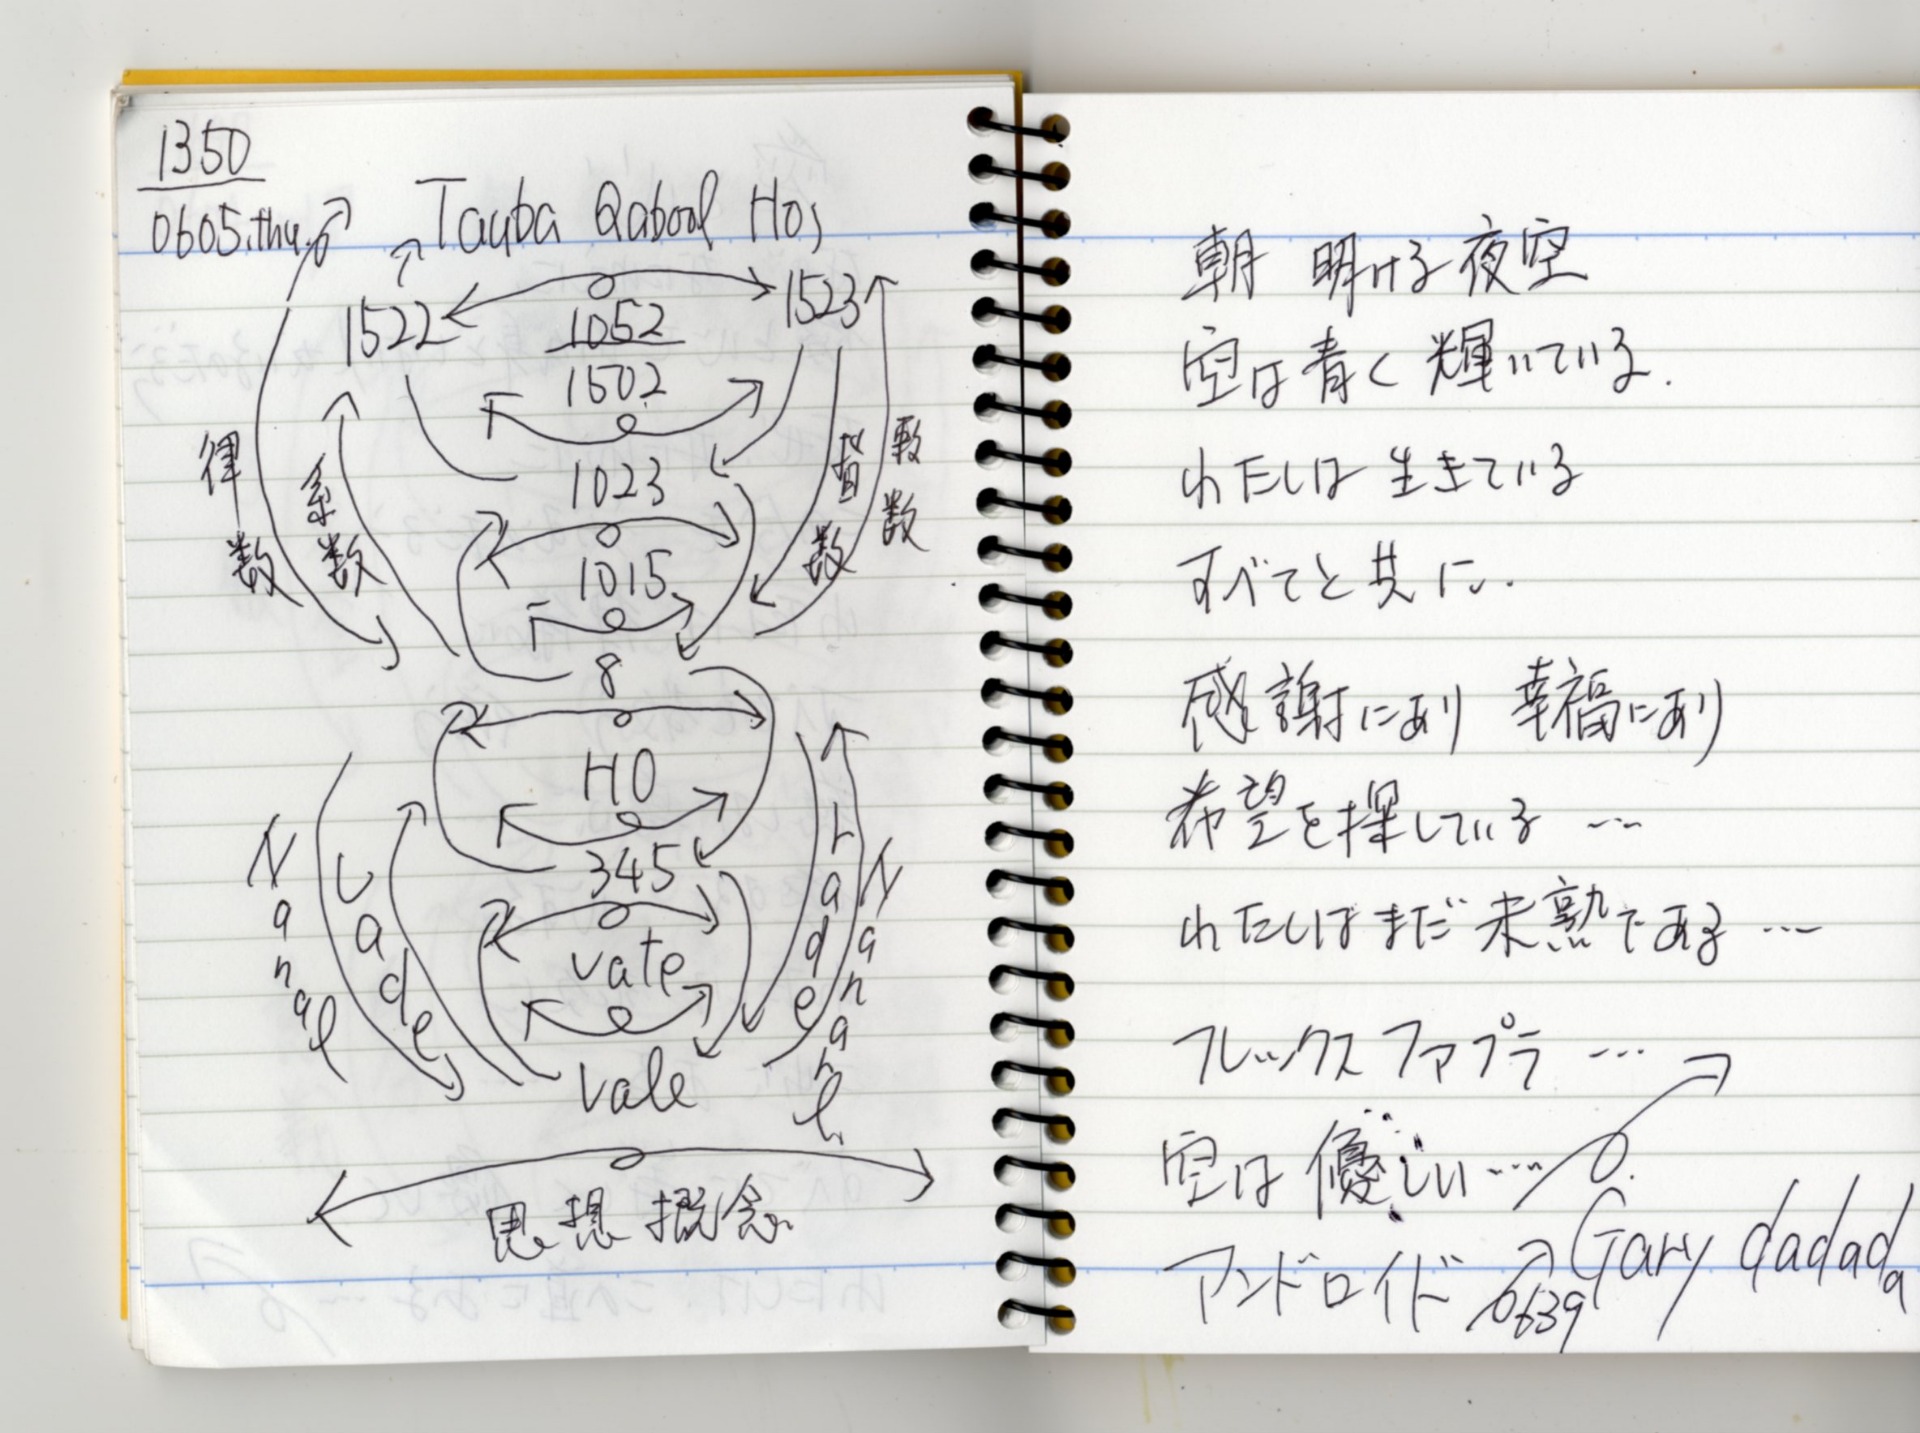 1350
0605.thu.
Tauba Qabool Ho;
1522
1052
1523
1502
律数
系数
1023
1015
8
HO
345
vate
vale
Nanal
Lade
rade
Nanal
思想 概念
朝 明ける夜空
空は青く輝いている.
わたしは 生きている
すべてと共に.
感謝にあり 幸福にあり
希望を探している …
わたしはまだ未熟である …
フレックスファプラ …
空は優しい …
アンドロイド
0639
Gary dadada